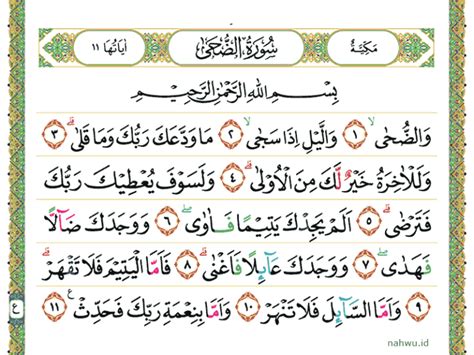 مَكِّيَّةٌ سُوْرَةُ الضُّحٰى اٰيَاتُهَا ١١
بِسْمِ اللّٰهِ الرَّحْمٰنِ الرَّحِيْمِ
وَالضُّحٰىۙ ١ وَالَّيْلِ اِذَا سَجٰىۙ ٢ مَا وَدَّعَكَ رَبُّكَ وَمَا قَلٰىۗ ٣
وَلَلْاٰخِرَةُ خَيْرٌ لَّكَ مِنَ الْاُوْلٰىۗ ٤ وَلَسَوْفَ يُعْطِيْكَ رَبُّكَ
فَتَرْضٰىۗ ٥ اَلَمْ يَجِدْكَ يَتِيْمًا فَاٰوٰىۖ ٦ وَوَجَدَكَ ضَاۤلًّا
فَهَدٰىۖ ٧ وَوَجَدَكَ عَاۤىِٕلًا فَاَغْنٰىۗ ٨ فَاَمَّا الْيَتِيْمَ فَلَا تَقْهَرْۗ
٩ وَاَمَّا السَّاۤىِٕلَ فَلَا تَنْهَرْۗ ١٠ وَاَمَّا بِنِعْمَةِ رَبِّكَ فَحَدِّثْ ࣖ ١١
ع
nahwu.id